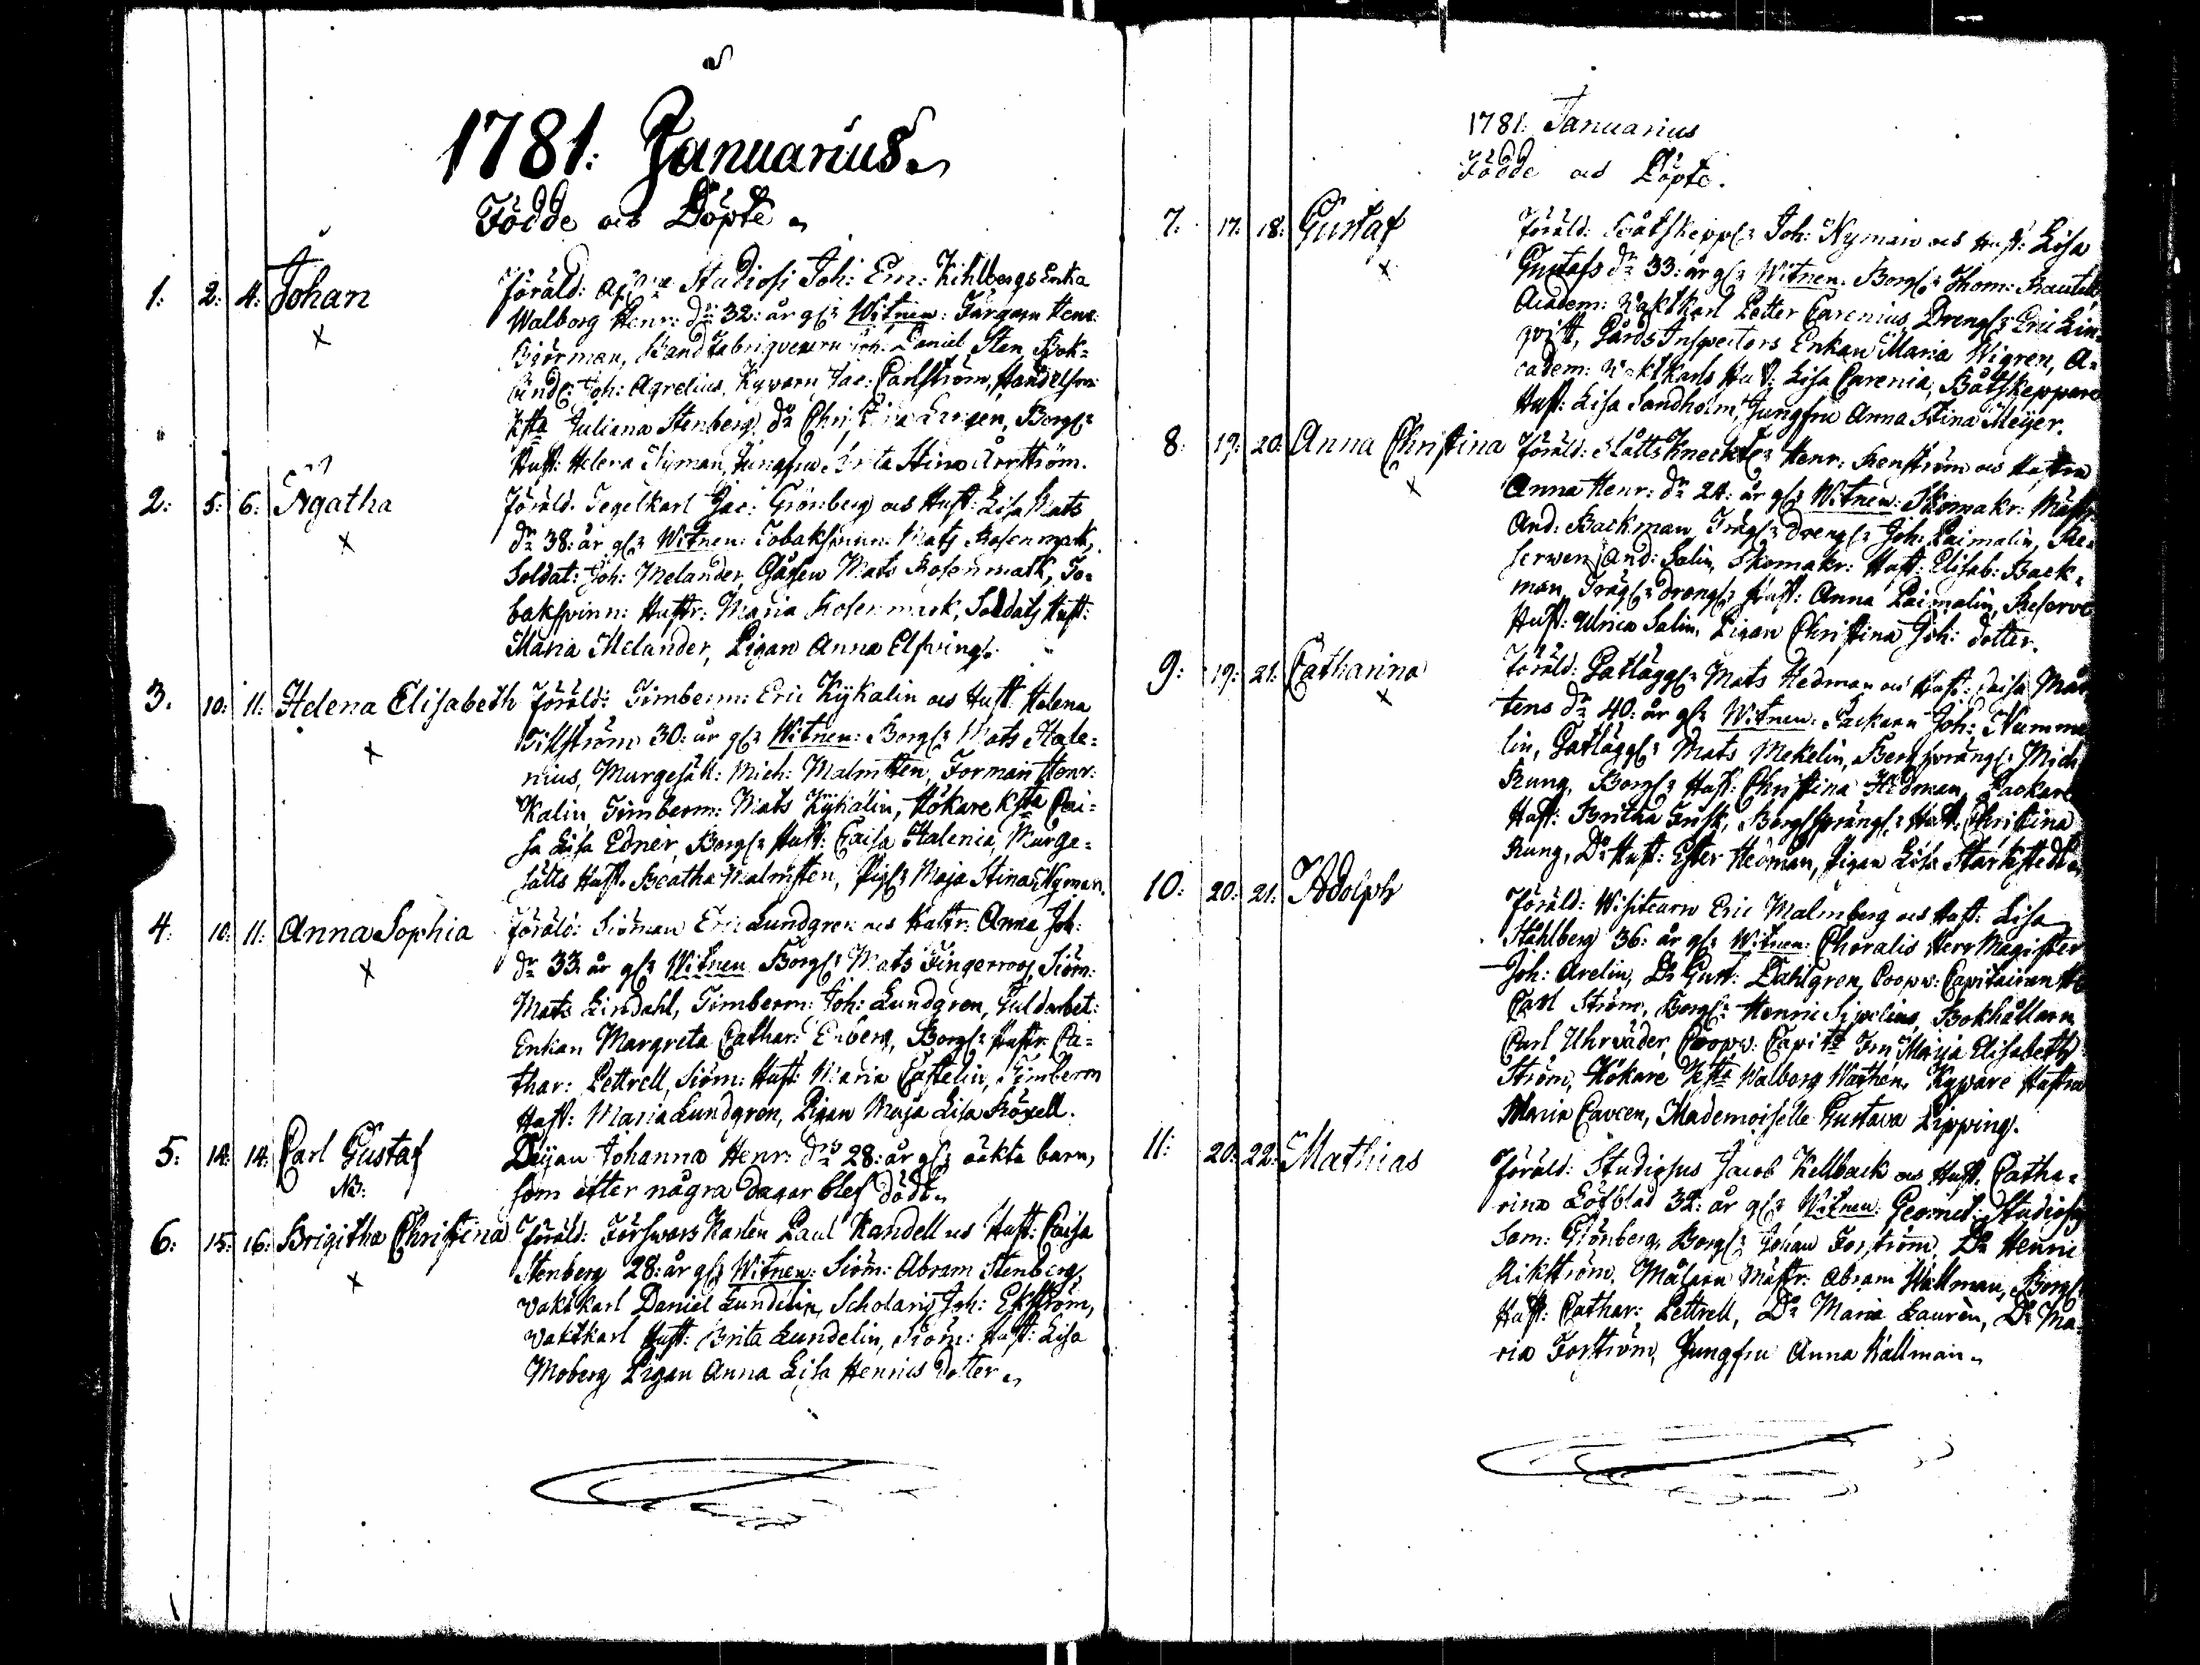 1781: Januarius.
Födde och Döpte.
1: 2: 4: Johan
Föräld: Studiosi Joh: Em: Kihlbergs Enka
Walborg Henr: dr 32: år gl: Witnen: Färgarn Henr:
Biörman, Bandfabriqueurn Joh: Daniel Sten, Bok=
bind: Joh: Agrelius, Kyparn Jac: Carlström, Handelsm:
Ksta Juliana Stenberg, do Christina Ersgen, Borgs:
Hust: Helena Nyman, Jungfru Brita Stina Örnström.
2: 5: 6: Agatha
Föräld: Tegelkarl Jac: Grönberg och Hust: Lisa Mats
dr 38: år gl: Witnen: Tobakspinn: Mats Rosenmark,
Soldat: Joh: Melander, Gossen Mats Rosenmark, To=
bakspinn: Hustr: Maria Rosenmark, Soldats Hust:
Maria Melander, Pigan Anna Elfving.
3. 10: 11: Helena Elisabeth
Föräld: Timberm: Eric Kykalin och Hust: Helena
Tillström 30: år gl: Witnen: Borgs: Mats Hale=
nius, Murgesäll: Mich: Malmsten, Forman Henr:
Kalin, Timberm: Mats Kykalin, Hökare Ksta Cai=
sa Lisa Edner, Borgs: Hust: Caisa Halenia, Murge=
sälls Hust: Beatha Malmsten, Pigs: Maja Stina Nyman.
4. 10: 11: Anna Sophia
Föräld: Siöman Eric Lundgren och Hustr: Anna Joh:
dr 33: år gl: Witnen Borgs: Mats Fingerroos, Siöm:
Mats Lindahl, Timberm: Joh: Lundgren, Guldarbet:
Enkan Margreta Cathar: Enberg, Borgs: Hustr: Ca=
thar: Pettrell, Siöm: Hust: Maria Castelin, Timberm
Hust: Maria Lundgren, Pigan Maja Lisa Röxell.
5: 14: 14: Carl Gustaf
NB:
Pijan Johanna Henr: dr 28: år gl: oäkta barn,
som efter några dagar blef dödt.
6: 15: 16: Brigitha Christina
Föräld: Förswars Karlen Paul Randell och Hust: Caisa
Stenberg 28: år gl: Witnen: Siöm: Abram Stenberg,
Vaktkarl Daniel Lundelin, Scholaris Joh: Ekström,
Vaktkarl Hust: Brita Lundelin, Siöm: Hust: Lisa
Moberg Pigan Anna Lisa Henrics dotter.
1781: Januarius
Födde och Döpte.
7. 17: 18: Gustaf
Föräld: Båtskepps: Joh: Nyman och Hust: Lisa
Gustafs dr 33: år gl: Witnen: Borgs: Thom: Rautell
Academ: Vaktkarl Petter Carenius, Drengs: Eric Lin=
qvist, Gårds Inspectors Enkan Maria Wigren, A=
cadem: Vaktkarls Hust: Lisa Carenia, Båtskeppare
Hust: Lisa Sandholm, Jungfru Anna Stina Meijer.
8: 19: 20: Anna Christina
Föräld: Slåtts Knecht: Henr: Renström och Hustru
Anna Henr: dr 24: år gl: Witnen: Skomakr: Mästr
And: Backman, Trägs: Drengs: Joh: Paimalin, Re=
serwen And: Salin, Skomakr: Hust: Elisab: Back=
man, Trägs: Drengs: Hust: Anna Paimalin, Reserve
Hust: Ulrica Salin, Pigan Christina Joh: dotter.
9: 19: 21: Catharina
Föräld: Gatlägg: Mats Hedman och Hust: Caisa Mår=
tens dr 40: år gl: Witnen: Packarn Joh: Numme
lin, Gatlägg: Mats Mekelin, Bergspräng: Mich
Rung, Borgs: Hust: Christina Hedman, Packare
Hust: Britha Frisk, Bergspräng: Hust: Christina
Rung, Do Hust: Ester Hedman, Pigan Lisa Starkstedt.
10: 20: 21: Adolph
Föräld: Wisiteurn Eric Malmberg och Hust: Lisa
Ståhlberg 36: år gl: Witnen: Choralis Herr Magister
Joh: Avelin, Do Gust: Dahlgren, Coopv: Capitainen H
Carl Ström, Borgs: Henric Sipelius, Bokhållarn
Carl Uhrväder, Coopv: Capits Fru Maija Elisabeth
Ström, Hökare Ksta Walborg Warthen, Kypare Hustru
Maria Cavcen, Mademoiselle Gustava Lipping.
11: 20: 22: Mathias
Föräld: Studiosus Jacob Kellback och Hust: Catha=
rina Löfblad 32: år gl: Witnen: Geomet: Studiosg
Sam: Grönberg, Borgs: Johan Forström, Do Henric
Rikström, Målarn Mästr: Abram Hällman, Borgs:
Hust: Cathar: Pettrell, Do Maria Lauren, Do Ma=
ria Forström, Jungfru Anna Källman.